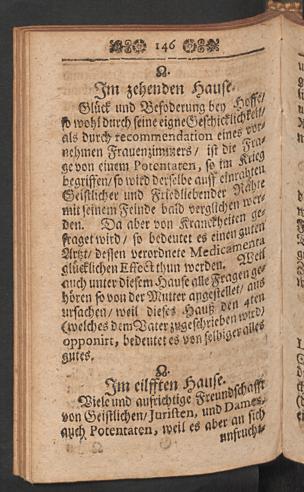 146
☊.
Im zehenden Hause.
Glück und Befoderung bey Hoffe/
so wohl durch seine eigne Geschicklichkeit/
als durch recommendation eines vor-
nehmen Frauenzimmers/ ist die Fra-
ge von einem Potentaten, so im Krieg
begriffen/ so wird derselbe auff einrahten
Geistlicher und Friedliebender Rähte
mit seinem Feinde bald verglichen wer-
den. Da aber von Kranckheiten ge-
fraget wird/ so bedeutet es einen guten
Artzt/ dessen verordnete Medicamenta
glücklichen Effect thun werden. Weil
auch unter diesem Hause alle Fragen ge-
hören so von der Mutter angestellet/ aus
ursachen/ weil dieses Hauß den 4ten
(welches dem Vater zugeschrieben wird)
opponirt, bedeutet es von selbiger alles
gutes.
☊.
Im eilfften Hause.
Viele und aufrichtige Freundschafft
von Geistlichen/ Juristen, und Dames,
auch Potentaten, weil es aber an sich
unfrucht-